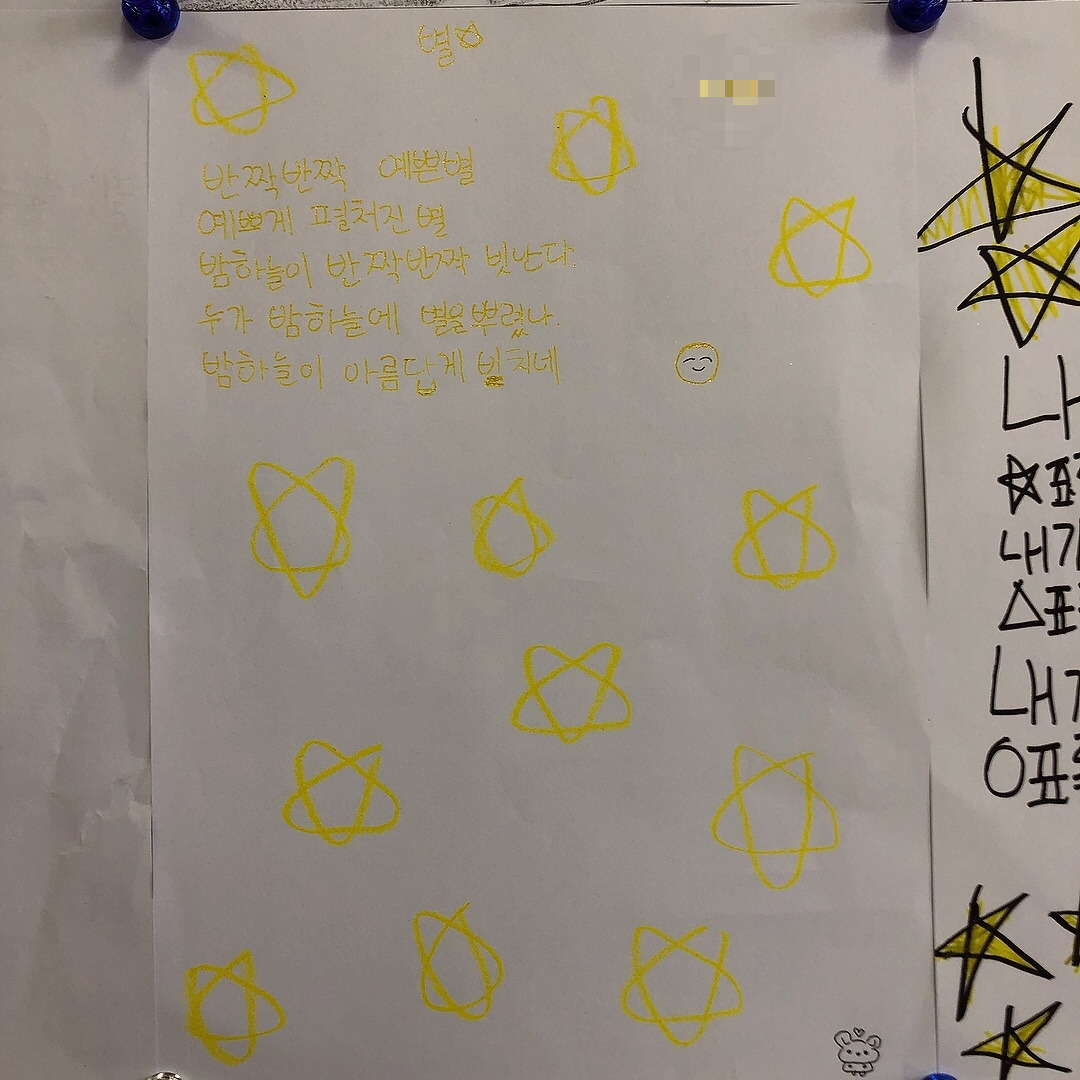 별☆
반짝반짝 예쁜별
예쁘게 펼처진 별
밤하늘이 반짝반짝 빗난다.
누가 밤하늘에 별을뿌렸나.
밤하늘이 아름답게 빛치네
나
☆표
내가
△표
내가
O표